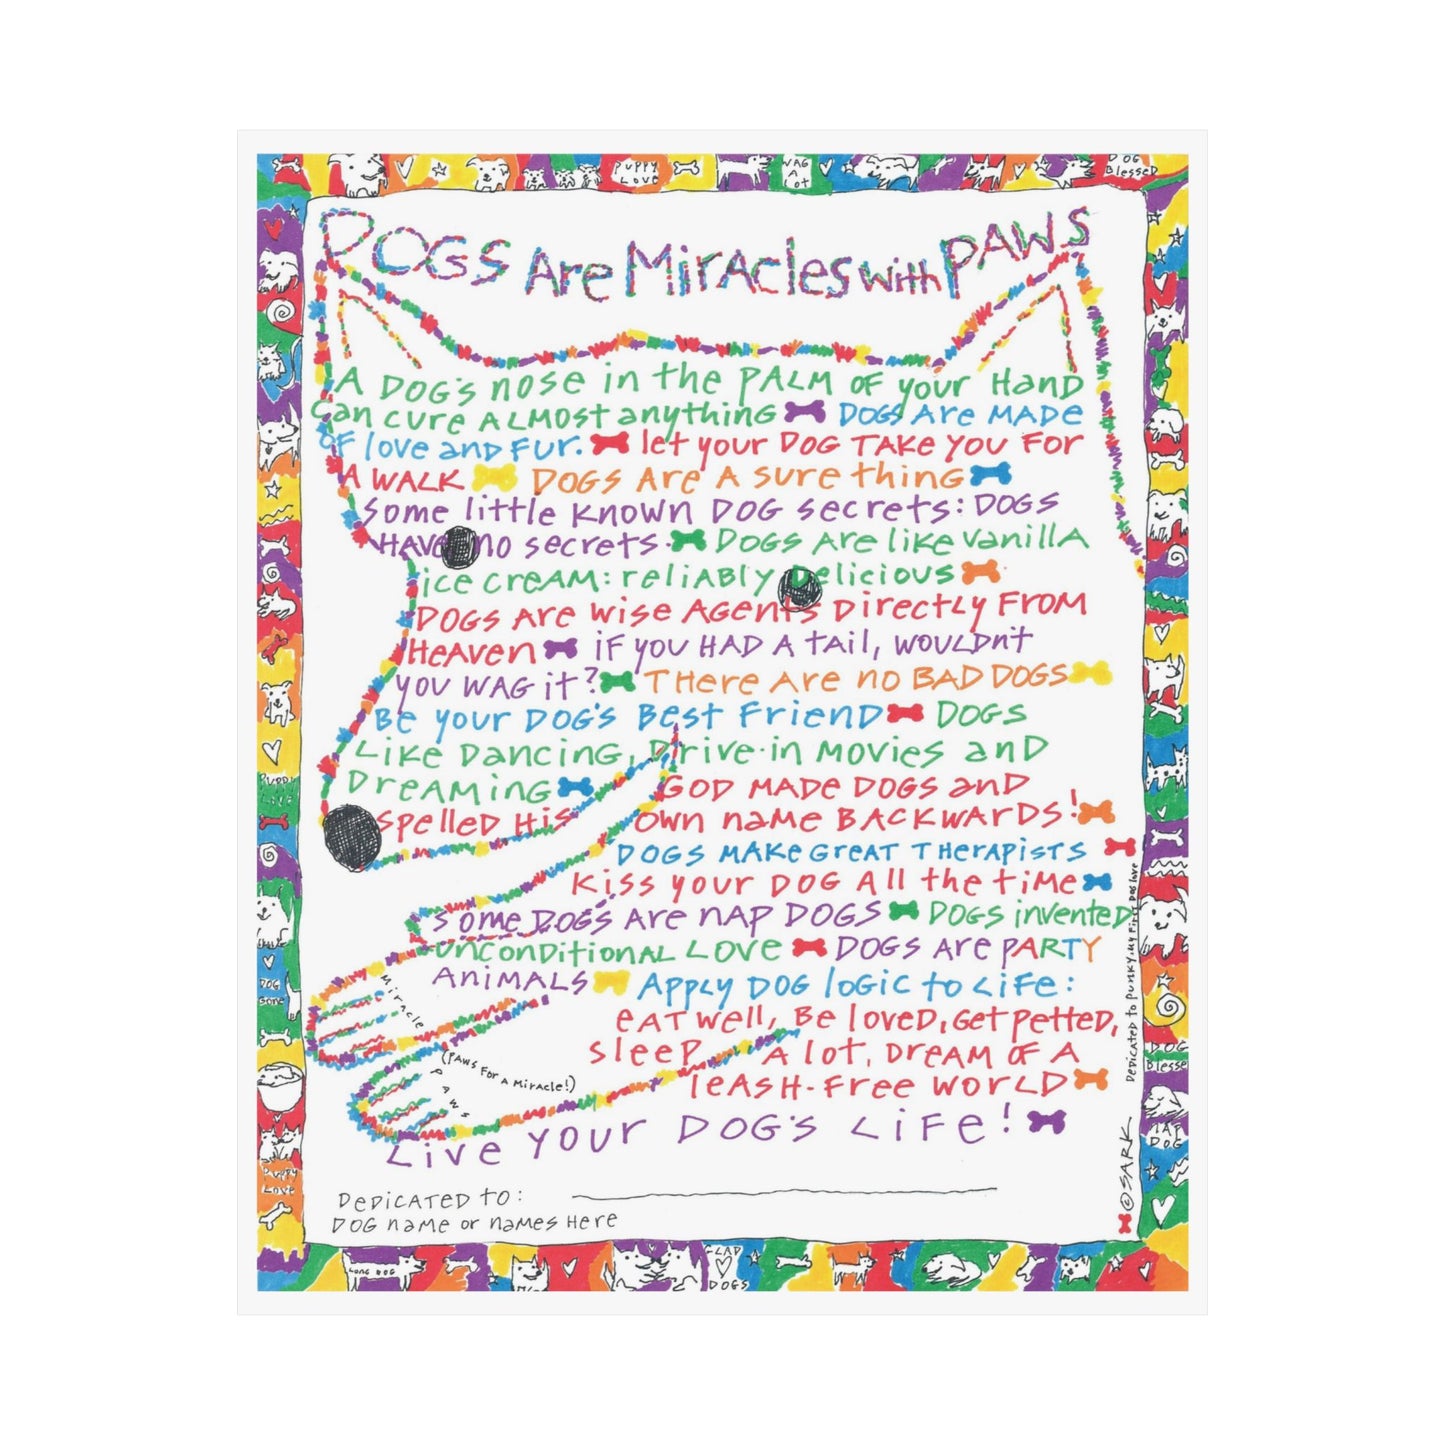 PUPPY LOVE
WAG A LOT
DOG Blessed
DOGS Are Miracles with PAWS
A DOG'S nose in the PALM OF your HanD
Can Cure ALMost anything DOGS Are MADE
OF love and FUr. let your DOG TAKE YOU FOR
A WALK DOGS Are A sure thing
Some little KNOWN DOG Secrets: DOGS
HAVE no secrets. DOGS Are like vanillA
ice creAM: reliABly Delicious
DOGS Are Wise Agents Directly From
HeAven iF you HAD A tAil, WOULDn't
you WAG it? THere Are no BAD DOGS
Be your DOG'S Best FrienD DOGS
Like DAnCinG, Drive-in Movies anD
DreAMinG GOD MADE DOGS anD
spelleD His own name BACKWArDS!
DOGS MAKe GreAT THerApists
Kiss your DOG All the tiMe
Some DOGS Are nAp DOGS DOGS invented
unconDitionAL LOVE DOGS Are pARTY
AniMALS Apply DOG logic to Life:
eAT well, Be loveD, Get petteD,
sleep A lot, DreAM oF A
leAsH-Free WorLD
Live your DOG'S LiFe!
Miracle
(PAWS For A Miracle!)
PAWS
DeDicAted to:
DOG name or names Here
Dedicated to Punky, My First Dog Love
© SARK
PUPPY
DOG Gone
PUPPY LOVE
DOG Blessed
NAP DOG
LONG DOG
GLAD DOGS